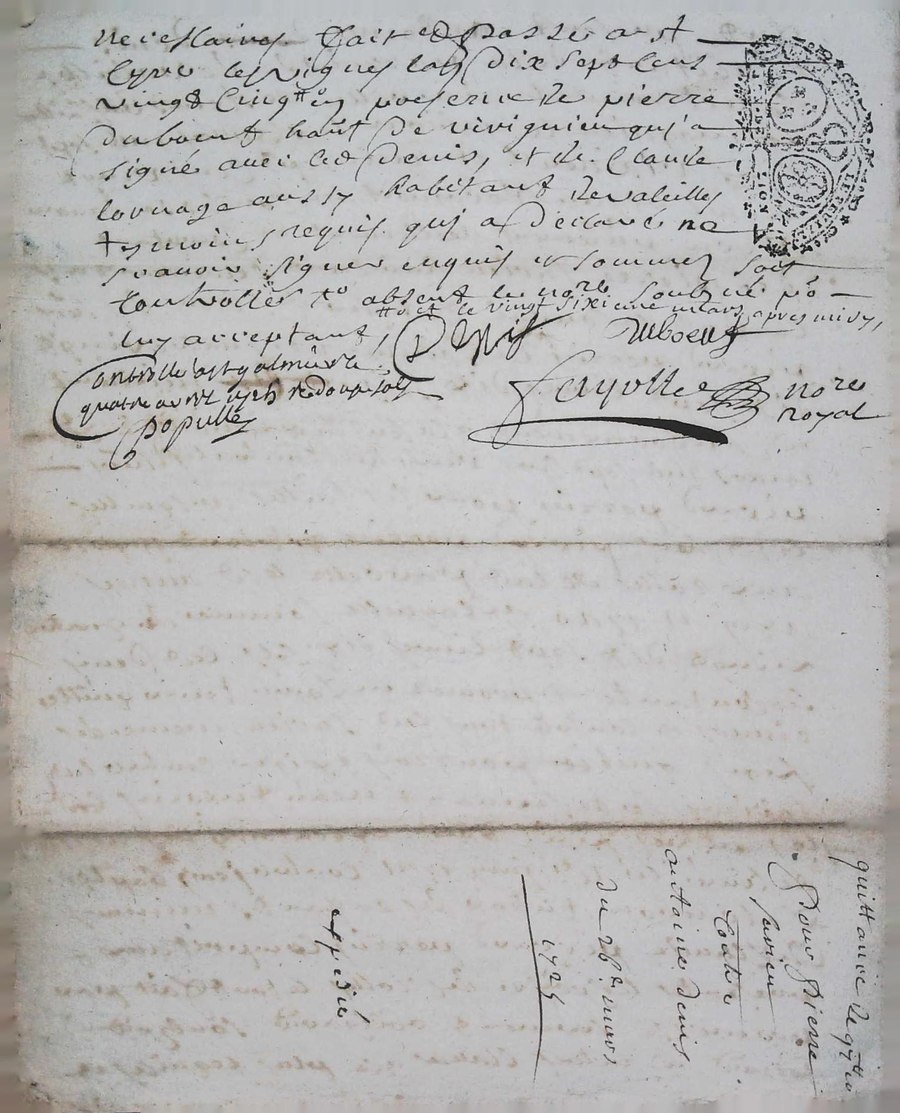 necessaires fait et passé a st
Cyre les vignes lan Dix sept Cens
vingt Cinq en presence de pierre
duboeuf haüt De virignieu qui a
signé avec led Denis, et de Claude
lornage aussy habitant De valeilles
tesmoins requis qui a Declaré ne
scavoir signer enquis et sommez soit
Controllee absent le nore soubne po
luy acceptant,
et le vingt sixieme mars apres midy,
Denis duboeuf
Controlle a st galmier le
quatre avril 1725 R douze sols
populle
fayolle nore
royal
quittance de
pour pierre
Contre
antoine denis
du 26e mars
1725
expedié